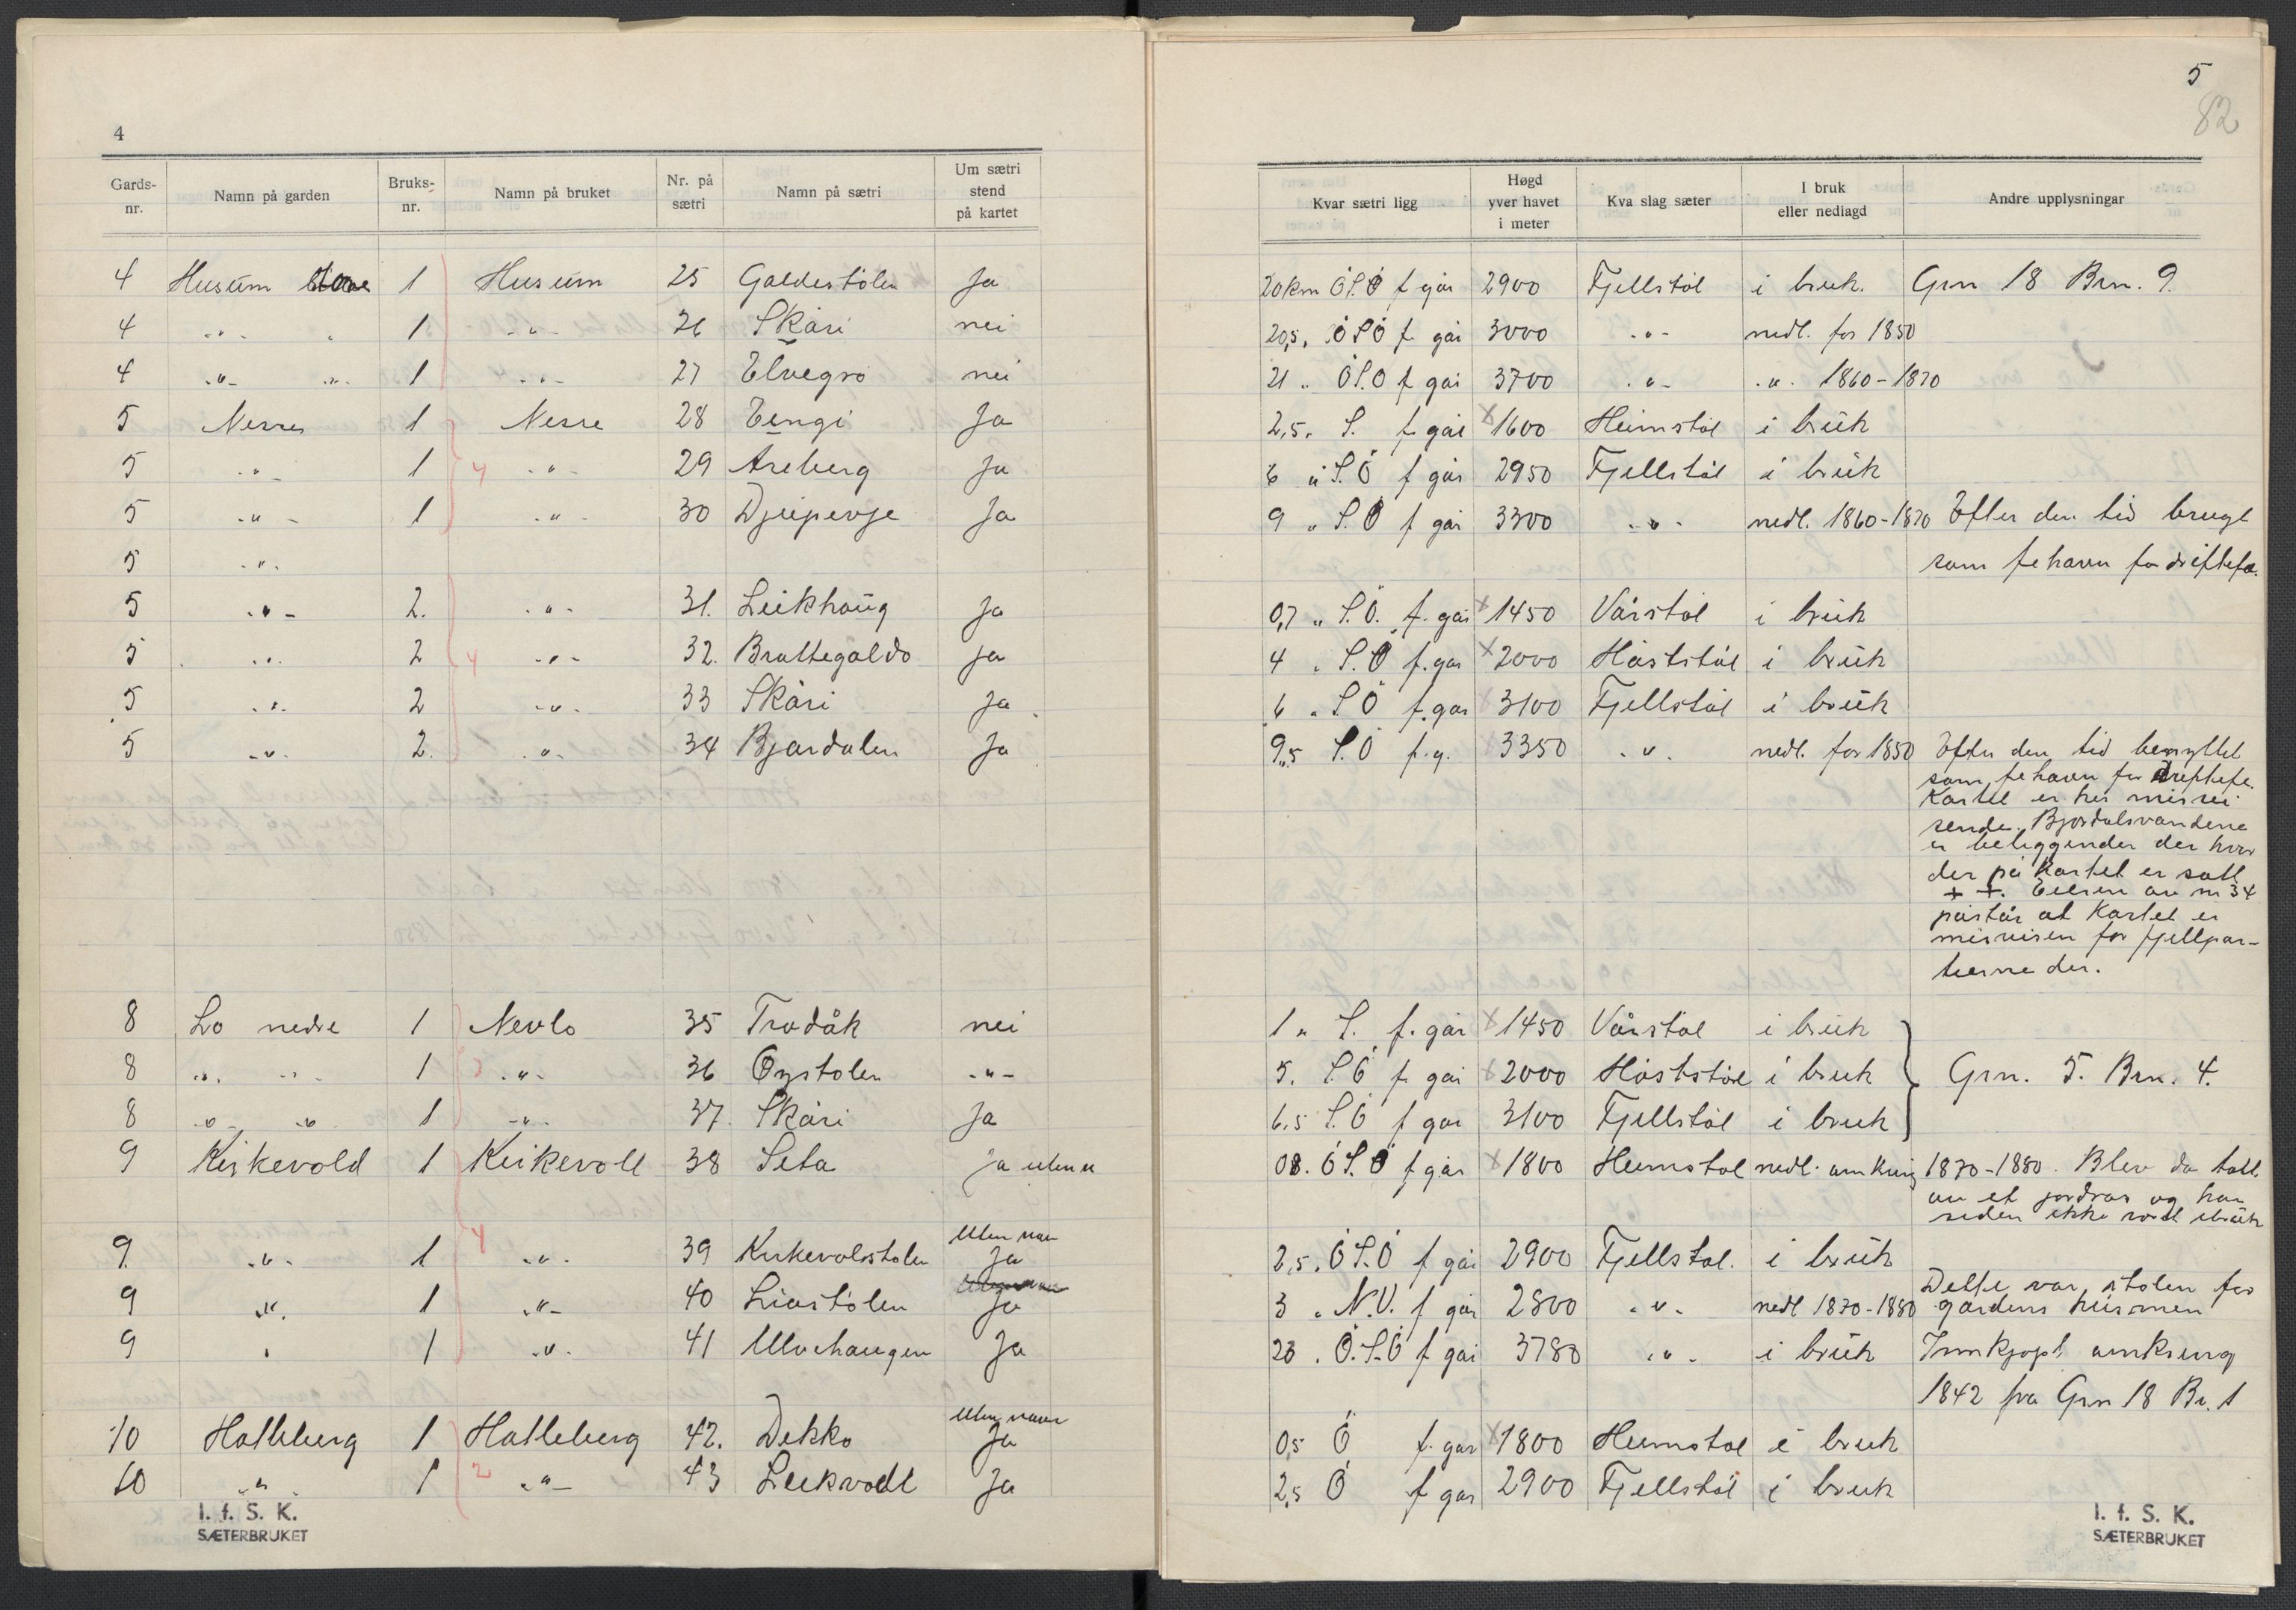 4
Gards-nr. Namn på garden Bruks-nr. Namn på bruket Nr. på sætri Namn på sætri Um sætri stend på kartet
4 Husum 1 Husum 25 Galdestölen Ja
4 -"- 1 -"- 26 Skåri nei
4 -"- -"- 1 -"- 27 Elvegro nei
5 Nesse 1 Nesse 28 Tengi Ja
5 -"- 1 4 -"- 29 Areberg Ja
5 -"- 1 -"- 30 Djupevje Ja
5 -"-
5 -"- 2. -"- 31. Leikhaug Ja
5 -"- 2 4 -"- 32. Brattegaldo Ja
5 -"- 2 -"- 33 Skåri Ja
5 -"- 2. -"- 34 Bjordalen Ja
8 Lo nedre 1 Nevlo 35 Trodåk nei
8 -"- -"- 1 3 -"- 36 Öystolen -"-
8 -"- -"- 1 -"- 37. Skåri Ja
9 Kirkevold 1 Kirkevoll 38 Seta Ja uten n
4 Uten navn
9. -"- 1 -"- 39 Kirkevolsstolen Ja
9 -"- 1 -"- 40 Liastölen Ja
9 " 1 -"- 41 Ulvehaugen Ja
Uten navn
10 Hatleberg 1 Hatleberg 42. Dekko Ja
10 -"- 1 2 -"- 43 Leikvoll Ja
I. f. S. K.
SÆTERBRUKET
5
82
Kvar sætri ligg Høgd yver havet i meter Kva slag sæter I bruk eller nedlagd Andre upplysningar
20 km Ö.S.Ö f går 2900 Fjellstöl i bruk. Grn 18 Brn. 9.
20,5 " Ö S Ö f. går 3000 -"- nedl. for 1850
21 " Ö S.Ö f går 3700 -"- -"- 1860-1870
2,5 " S. f. går x 1600 Heimstöl i bruk
6 " S.Ö f går 2950 Fjellstöl i bruk
9 " S.Ö f går 3300 -"- nedl. 1860-1870 Efter den tid brugt
som fehavn for driftefe.
0,7 " S.Ö. f. går x 1450 Vårstöl i bruk
4 " S.Ö f. går x 2000 Höststöl i bruk
6 " S.Ö f. går 3100 Fjellstöl i bruk
9,5 " S.Ö f. g. 3350 -"- nedl. for 1850 Efter den tid benyttet
som fehavn for driftefe.
Kartet er her misvi-
sende. Bjordalsvandene
er beliggender der hvor
der på Kartet er satt
+ +. Eieren av nr 34
påstår at Kartet er
misvisen for fjellpar-
tierne der.
1 " S. f. går x 1450 Vårstöl i bruk
5. S.Ö f. går x 2000 Höststöl i bruk Grn. 5. Brn. 4.
6,5 S.Ö f går 3100 Fjellstöl i bruk
08. Ö S.Ö f går x 1800 Heimstöl nedl. omkring 1870-1880. Blev da tatt
av et jordras og har
siden ikke vært i bruk
2,5 " Ö S.Ö f går 2900 Fjellstöl. i bruk
Dette var stolen for
3 " N.V. f går 2800 -"- nedl 1870-1880 gardens husmen
23 " Ö.S.Ö f går 3780 -"- i bruk Innkjöpt omkring
1842 fra Grn 18 Br. 1
0,5 Ö f. går x 1800 Heimstöl i bruk
2,5 Ö f går 2900 Fjellstöl i bruk
I. f. S. K.
SÆTERBRUKET